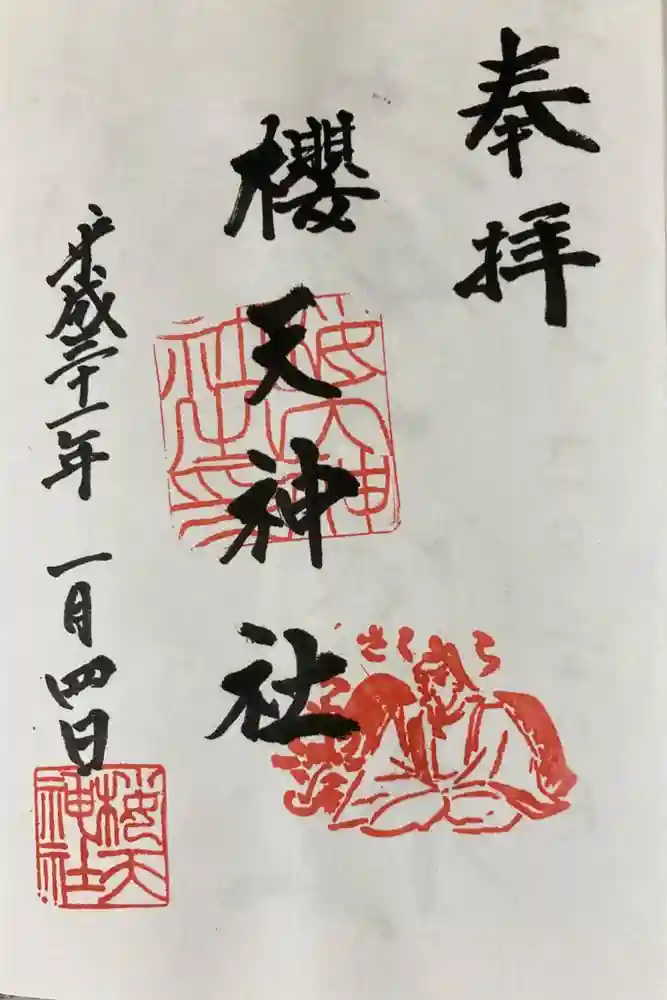 奉拝
櫻天神社
平成三十一年 一月四日
桜天神社之印
さくら
桜天神社